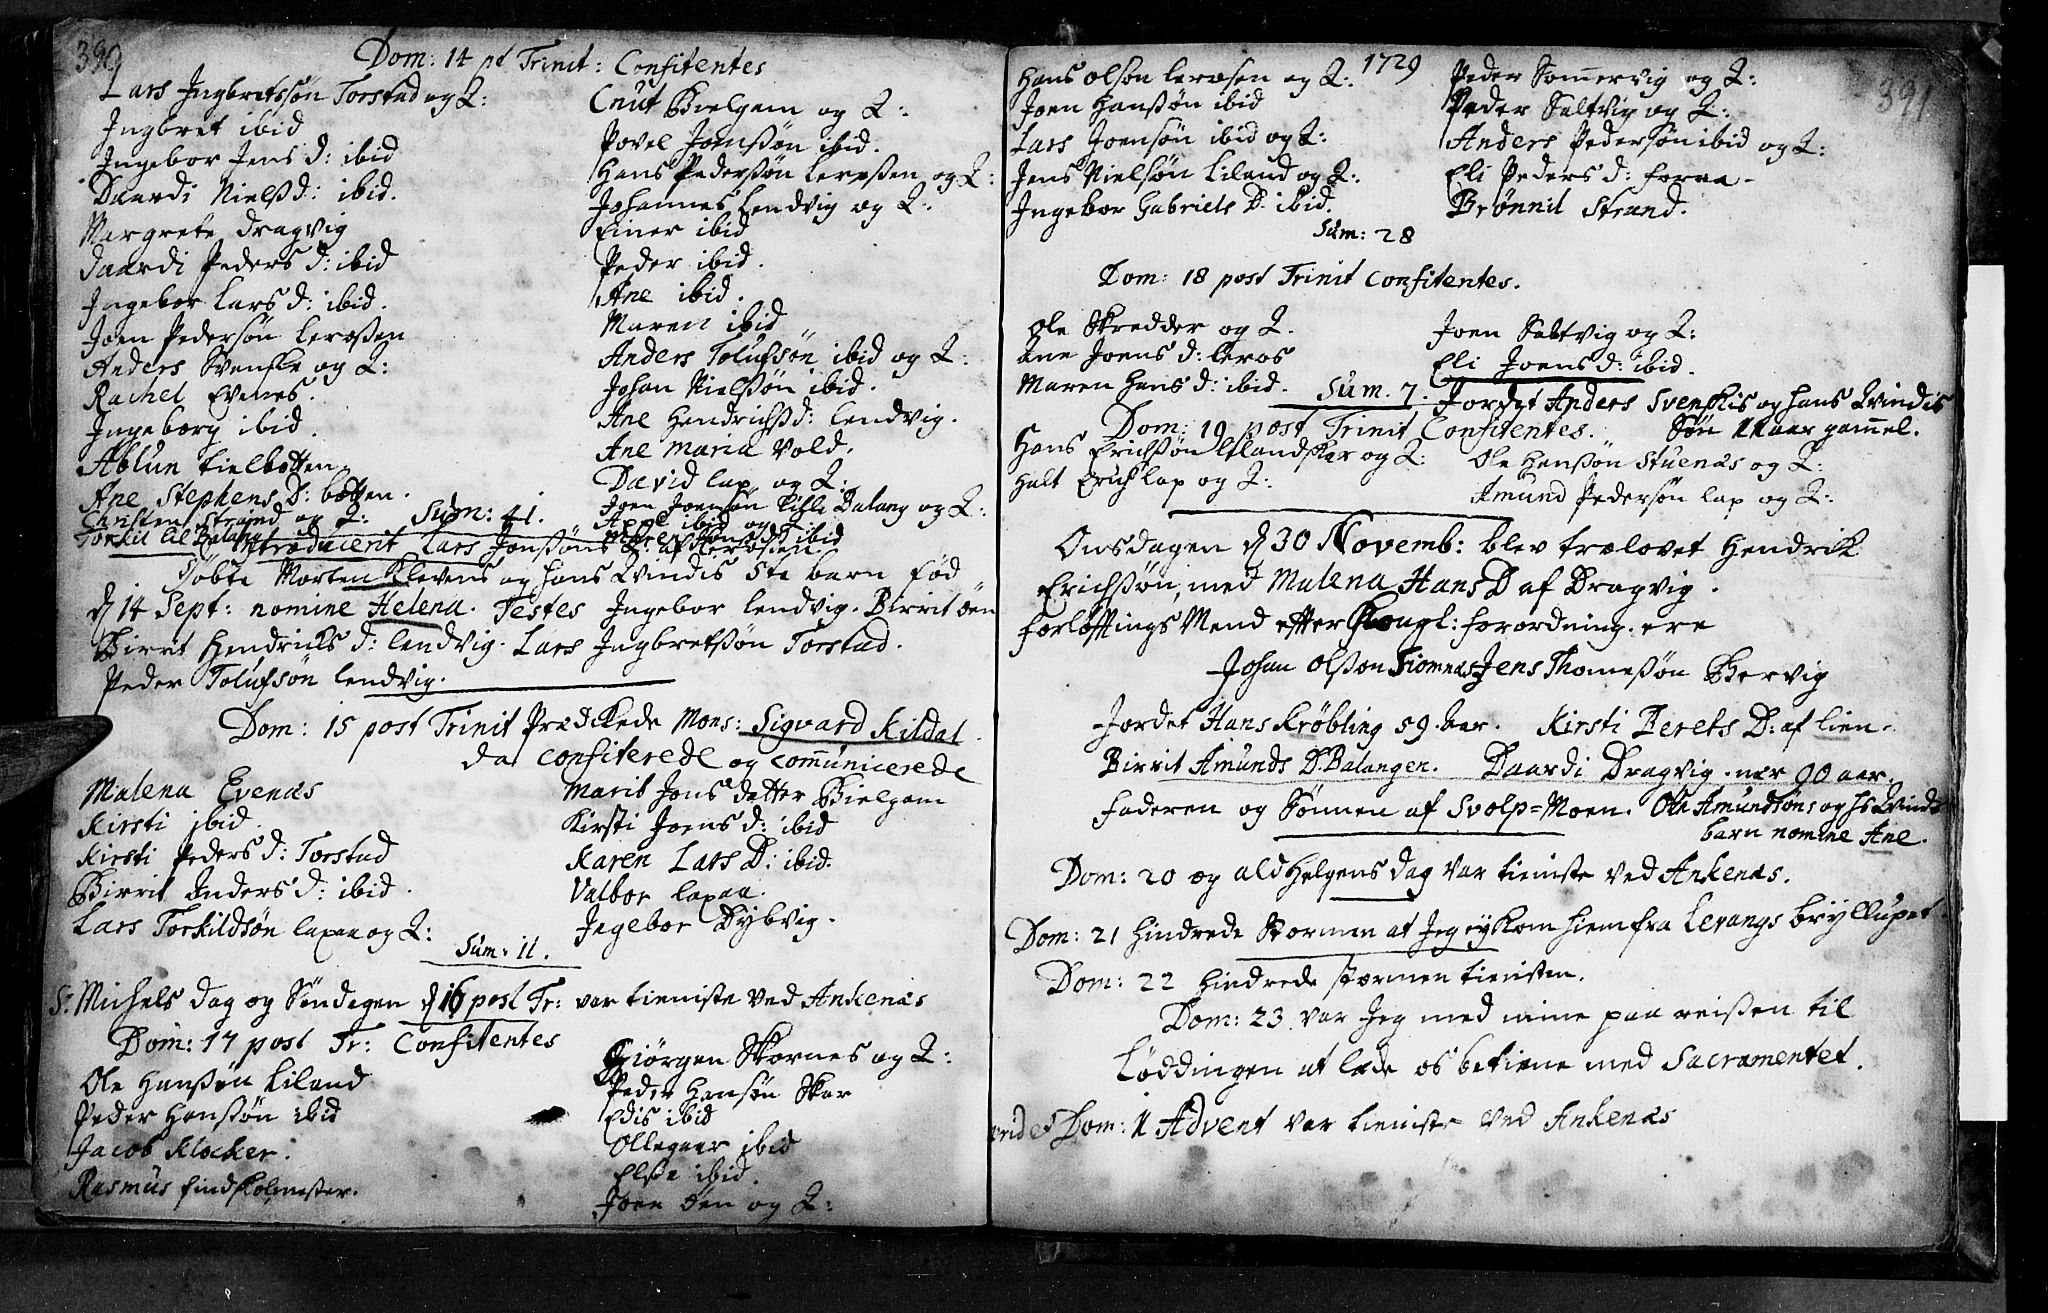 390
Dom: 14 pt Trinit: Confitentes
Lars Ingbretsøn Torstad og Q:
Ingbret ibid
Ingebor Jens d: ibid
Daardi Nielsd: ibid.
Margrete Dragvig
Daardi Peders d: ibid
Ingebor Lars d: ibid.
Joen Pedersøn Leroßen
Anders Svenske og Q:
Rachel Evenes.
Ingeborg ibid.
Ablun Kielbotten
Ane Stephens D: botten.
Christen Strand og Q: Sum: 41.
Torkil lil Balang
Cnut Bielgam og Q:
Povel Jonsøn ibid.
Hans Pedersøn Leroßen og Q:
Johannes Lendvig og Q:
Einer ibid
Peder ibid.
Ane ibid.
Maren ibid
Anders Tolufsøn ibid og Q:
Johan Nielßøn ibid.
Ane Hendrichsd: lendvig.
Ane Maria Vold.
David lap og Q:
Joen Joensøn lille Balang og Q:
Appel ibid og
Maren Hans d ibid
Introducerit Lars Jonsøns Q: af Leroßen.
Døbte Morten Elevens og hans Qvindis 5te barn fød
d 14 Sept: nomine Helena. Testes Ingebor lendvig. Birrit øen
Birrit Hendrichs d: lendvig. Lars Ingbretsøn Torstad.
Peder Tolufsøn lendvig.
Dom: 15 post Trinit Prædickede Mons: Sigvard Kildal.
da confiterede og communicerede
Malena Evenæs
Kirsti ibid.
Kirsti Peders d: Torstad
Birrit Anders d: ibid.
Lars Torkildsøn lapaa og Q:
Sum: 11.
Marit Jons datter Bielgam
Kirsti Joens d: ibid
Karen Lars D: ibid.
Valbor lapaa.
Ingebor Dybvig.
St Michels dag og Søndagen d 16 post Tr: var tieniste ved Ankenæs
Dom: 17 post Tr: Confitentes
Ole Hansøn Liland
Peder Hansøn ibid
Jacob Klocker.
Rasmus findskolmester.
Giørgen Skornes og Q:
Peder Hansøn Skar
Edis ibid
Ollegaar ibid
Elße ibid.
Joen øen og Q:
1729
391
Hans Olson Lerosen og Q:
Joen Hansøn ibid
Lars Joensøn ibid og Q:
Jens Nielsøn Liland og Q:
Ingebor Gabriels D. ibid.
Peder Somervig og Q:
Peder Saltvig og Q:
Anders Pedersøn ibid og Q:
Eli Peders d: foraa
Brønnil Strand.
Sum: 28
Dom: 18 post Trinit Confitentes.
Ole Skredder og Q.
Ane Joens d: Leros
Maren Hans d: ibid. Sum. 7.
Joen Saltvig og Q:
Eli Joens d: ibid.
Jordet Anders Svenskis og hans Qvindis
Søn 11 aar gammel.
Dom: 19 post Trinit Confitentes.
Hans Erichsøn og Q:
Halt Erich lap og Q:
Ole Hansøn Stuenæs og Q:
Amund Pedersøn lap og Q:
Onsdagen d 30 Novemb: blev trolovet Hendrik
Erichsøn, med Malena Hans D af Dragvig.
forløftings Mend efter Kongl: forordning. ere
Johan Olsson Jens Thomesøn Bervig
Jordet Hans Krøbling 59 aar. Kirsti Berets D: af lien.
Birrit Amunds D. Balangen. Daardi Dragvig. nær 90 aar.
Faderen og Sønnen af Svolp=Moen. Ole Amundsøns og hs Qvindis
barn nomine Ane.
Dom: 20 og ald Helgens dag var tieniste ved Ankenæs.
Dom: 21 hindrede stormen at Jeg ey kom hiem fra Levangs bryllupet.
Dom: 22 hindrede stormen tienisten.
Dom: 23 var Jeg med mine paa reißen til
Løddingen at lade os betiene med Sacramentet.
Dom: 1 Advent var tieniste ved Ankenæs